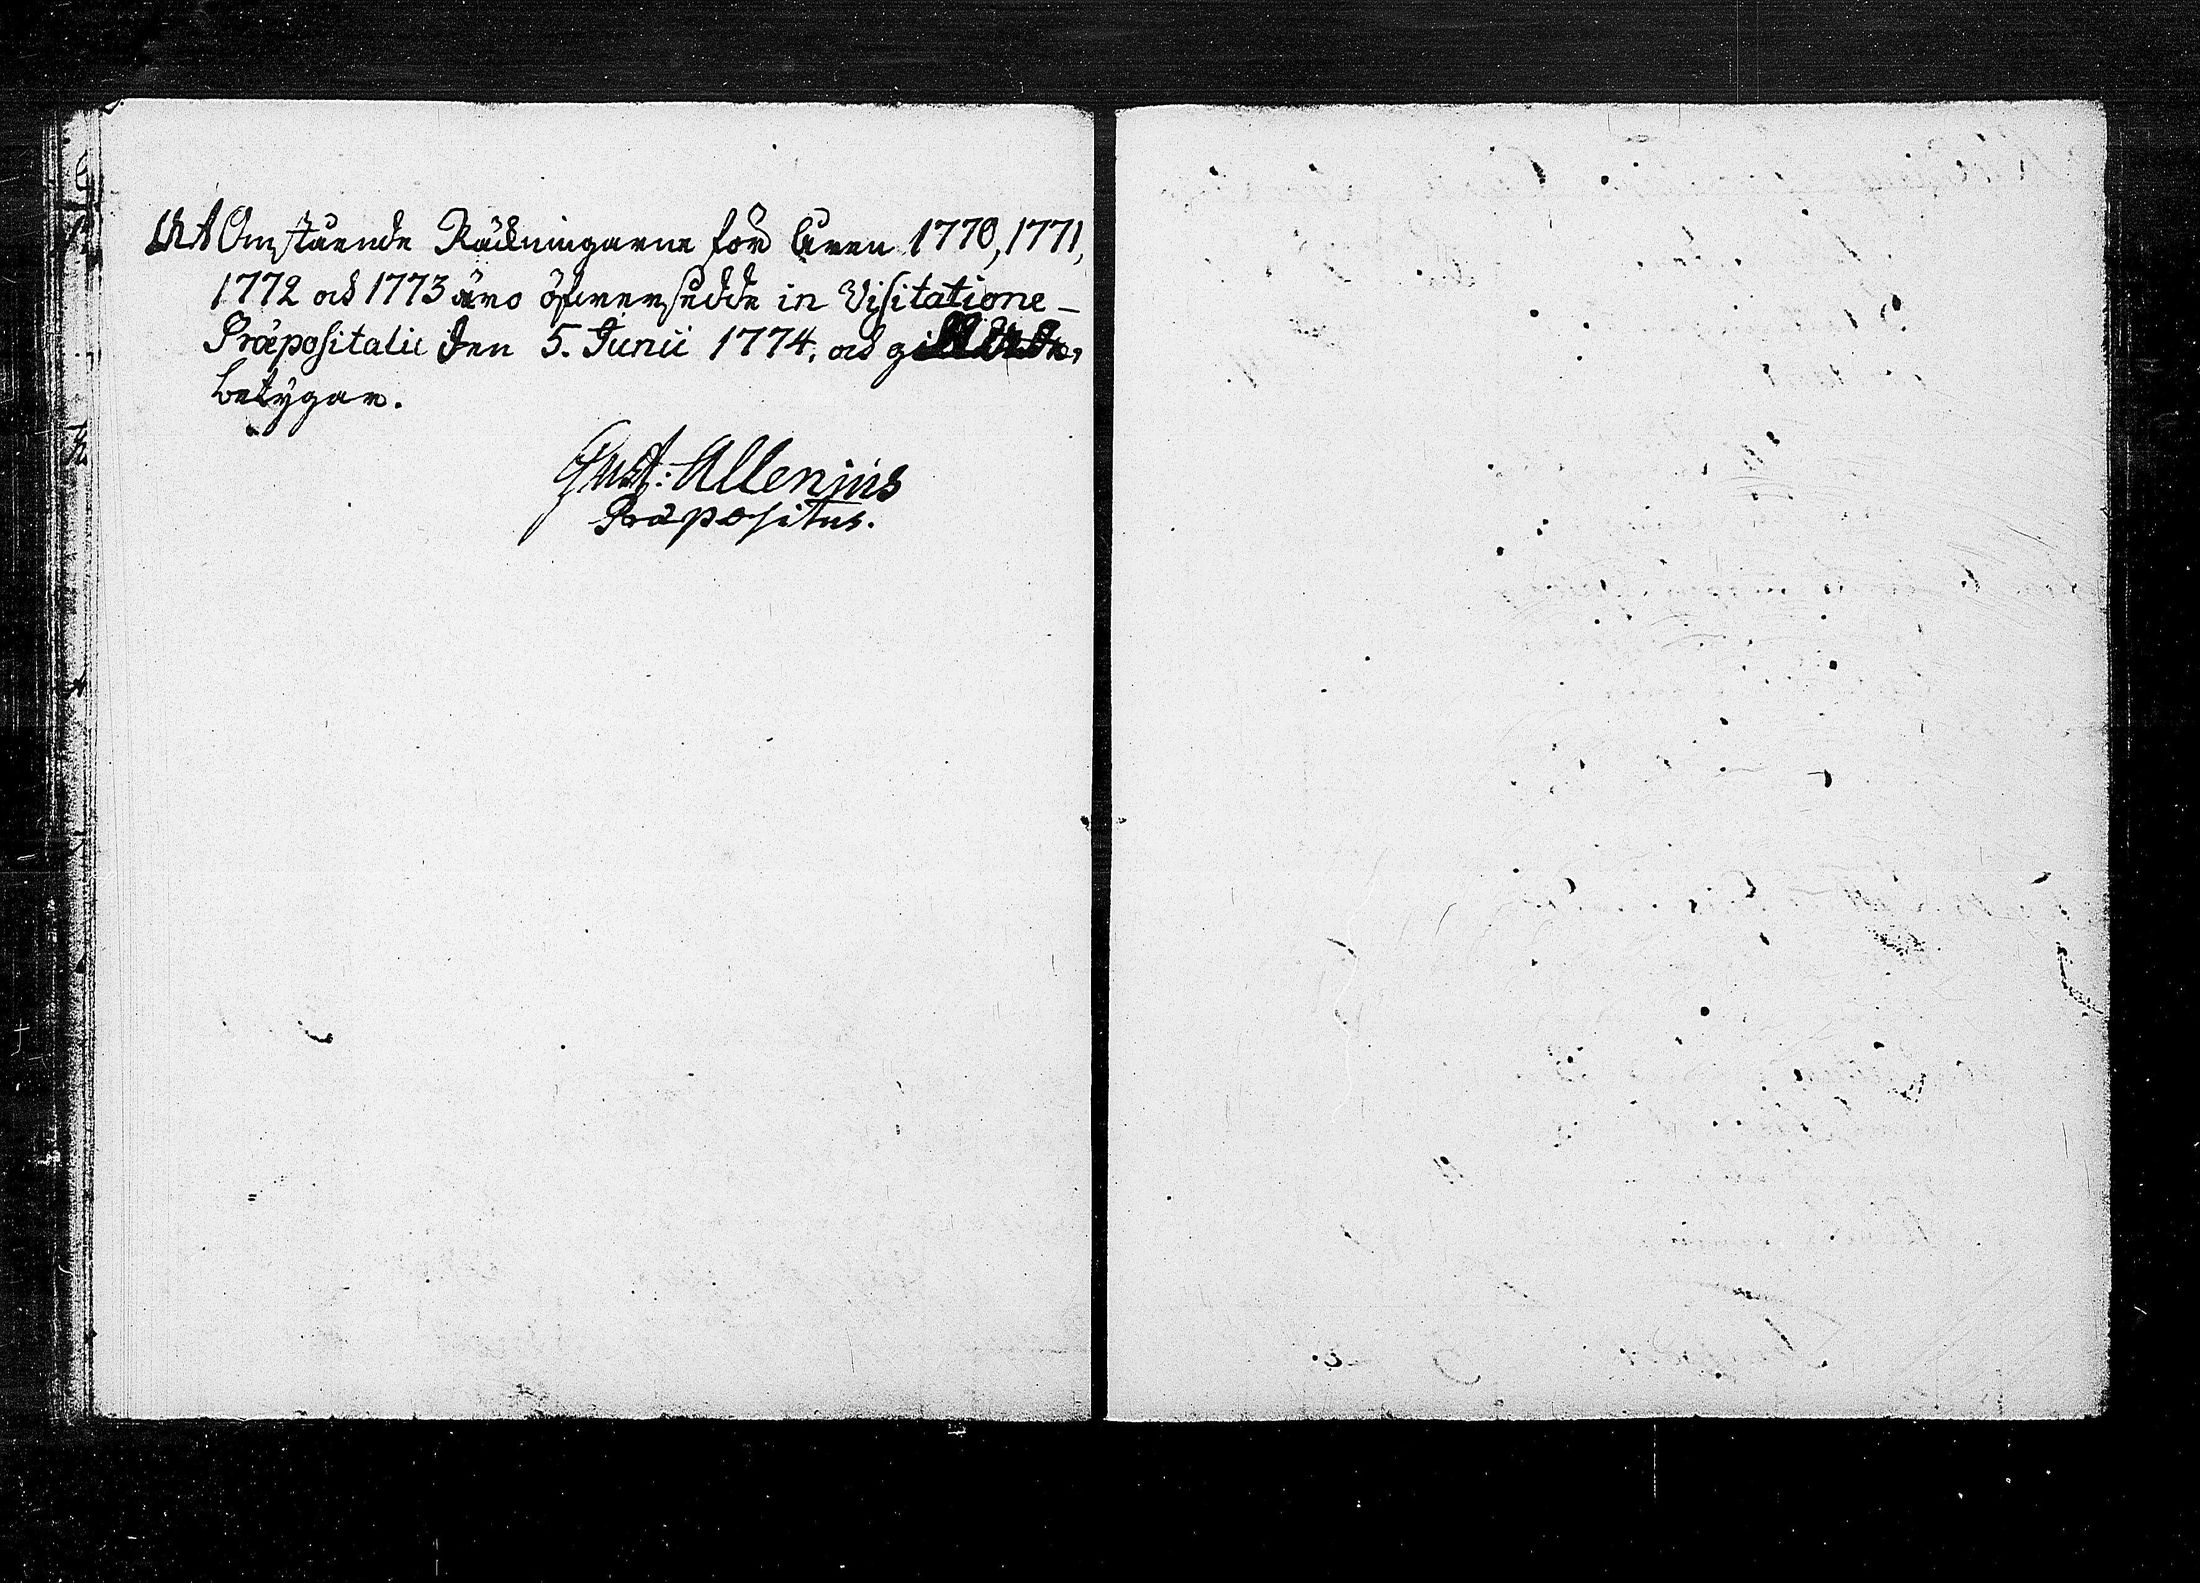 At Omstående Räckningarne för Åren 1770, 1771,
1772 och 1773 äro öfwersedde in Visitatione
Præpositali den 5. Junii 1774, och
betygar.
Gust: Allenius
Præpositus.